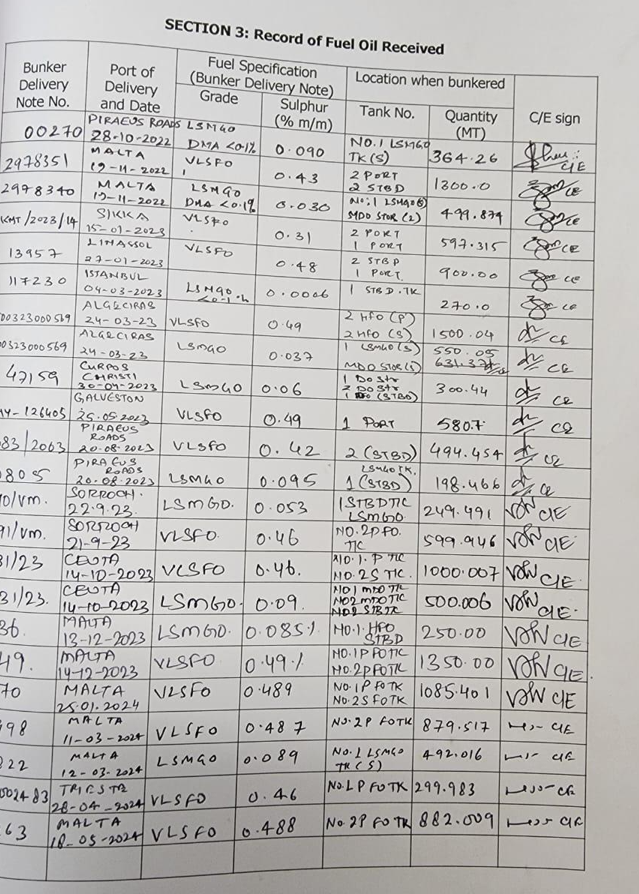 SECTION 3: Record of Fuel Oil Received
Bunker Delivery Note No. Port of Delivery and Date Fuel Specification (Bunker Delivery Note) Location when bunkered C/E sign
Grade Sulphur (% m/m) Tank No. Quantity (MT)
00270 PIRAEUS ROADS 28-10-2022 LSMGO DMA <0.1% 0.090 NO.1 LSMGO TK(S) 364.26 C/E
2978351 MALTA -11-2022 VLSFO 0.43 2 PORT 2 STBD 1300.0 CE
2978340 MALTA -11-2022 LSMGO DMA <0.1% 0.030 NO:1 LSMGO(S) MDO STOR (2) 499.874 CE
KMT/2023/14 SIKKA 15-01-2023 VLSFO 0.31 2 PORT 1 PORT 597.315 CE
13957 LIMASSOL 27-01-2023 VLSFO 0.48 2 STBD 1 PORT 900.00 CE
117230 ISTANBUL 04-03-2023 LSMGO 0.0006 1 STBD.TK 270.0 CE
00323000569 ALGECIRAS 24-03-23 VLSFO 0.49 2 HFO (P) 2 HFO (S) 1500.04 CE
0323000569 ALGECIRAS 24-03-23 LSMGO 0.037 1 LSMGO(S) MDO STOR(S) 550.05 CE
47159 CURPOS CHRISTI 30-04-2023 LSMGO 0.06 1 DO Str 2 DO Str 1 (STBD) 300.44 CE
14-126405 GALVESTON 25.05.2023 VLSFO 0.49 1 PORT 580.7 CE
83/2063 PIRAEUS ROADS 20-08-2023 VLSFO 0.42 2 (STBD) 494.454 CE
8085 PIRAEUS ROADS 20-08-2023 LSMGO 0.095 LSMGO TK. 1 (STBD) 198.466 CE
0/VM. 22.9.23. LSMGO. 0.053 1STBD TK LSMGO 249.491 C/E
91/VM. 21-9-23 VLSFO. 0.46 NO.2P FO. TK 599.946 C/E
31/23 CEUTA 14-10-2023 VLSFO 0.46. NO.1.P TK NO.2S TK. 1000.007 C/E
31/23. CEUTA 14-10-2023 LSMGO. 0.09. NO1 MDO TK NO2 MDO TK NO2 STB TK 500.006 C/E.
36. MALTA 13-12-2023 LSMGO. 0.085% NO.1.HFO STBD 250.00 C/E
49. MALTA 14-12-2023 VLSFO 0.49% NO.1P FO TK NO.2P FO TK 1350.00 C/E
70 MALTA 25.01.2024 VLSFO 0.489 NO.1P FO TK NO.2S FO TK 1085.401 C/E
498 MALTA 11-03-2024 VLSFO 0.487 NO.2P FO TK 879.517 C/E
822 MALTA 12-03-2024 LSMGO 0.089 NO.1 LSMGO TK (S) 492.016 C/E
002483 TRIESTE 28-04-2024 VLSFO 0.46 NO.1P FO TK 299.983 C/E
63 MALTA 18-05-2024 VLSFO 0.488 NO.2P FO TK 882.009 C/E